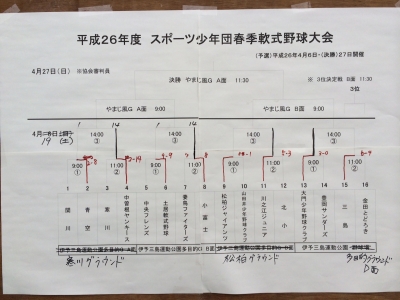 平成26年度 スポーツ少年団春季軟式野球大会
(予選)平成26年4月6日・(決勝)27日開催
4月27日(日) ※協会審判員
決勝 やまじ風G A面 11:30
※ 3位決定戦 B面 11:30
3位
やまじ風G A面 9:00
やまじ風G B面 9:00
19 (土)
14:00 14:00 14:00 14:00
③ ③ ③ ③
9:00 11:30 9:00 11:30 9:00 11:30 9:00 11:00
① ② ① ② ① ② ① ②
1 2 3 4 5 6 7 8 9 10 11 12 13 14 15 16
関川
青空
寒川
中曽根ヤンキース
中央フレンズ
土居軟式野球
妻鳥ファイターズ
小富士
松柏ジャイアンツ
山田井少年野球クラブ
川之江ジュニア
北小
大門少年野球クラブ
豊岡サンダーズ
三島
金田とどろき
伊予三島運動公園多目的G A面
伊予三島運動公園多目的G B面
伊予三島運動公園 野球場
寒川グラウンド
松柏グラウンド